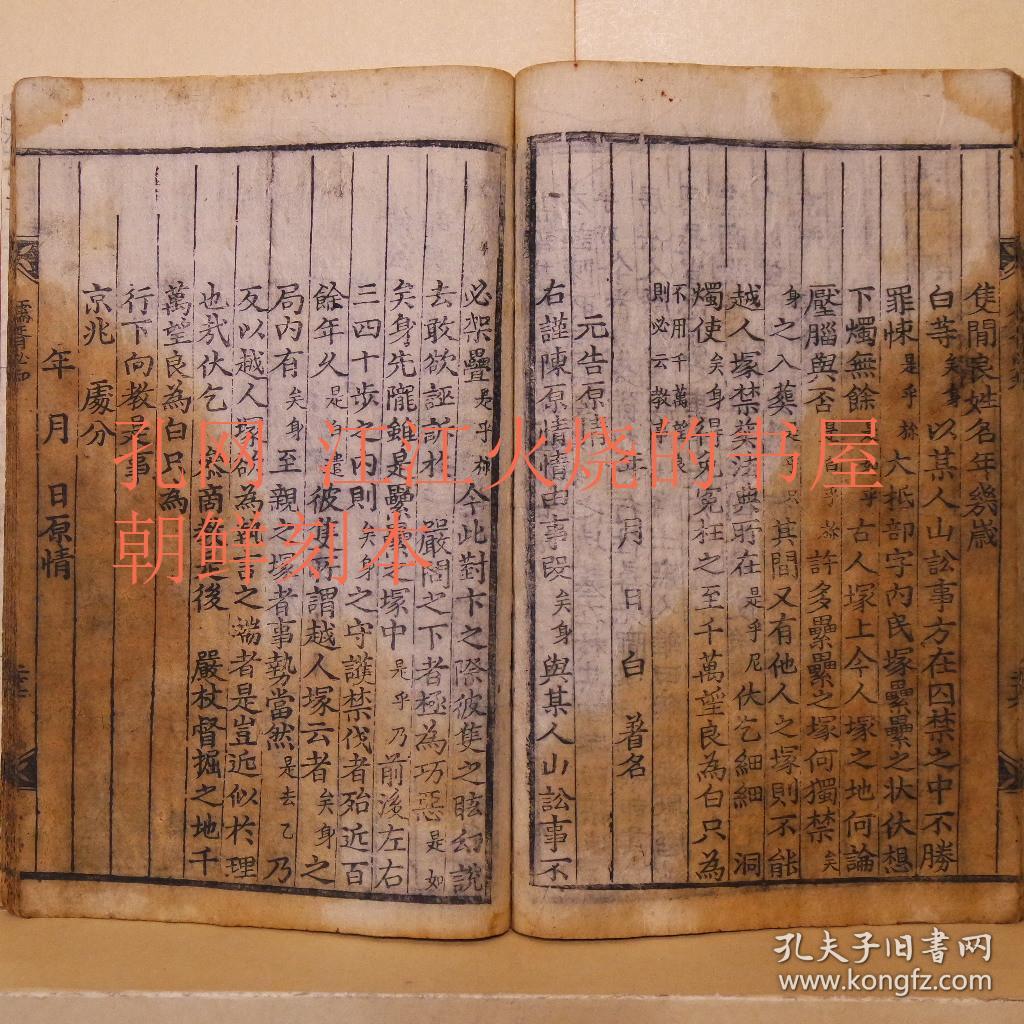 隻閒良姓名年幾歲
白等矣身以某人山訟事方在囚禁之中不勝
罪悚是乎 大抵部字內民塚纍纍之狀伏想
下燭無餘 乎古人塚上今人塚之地何論
壓腦與否 許多纍纍之塚何獨禁矣
身之入葬 其間又有他人之塚則不能
越人塚禁葬法典所在是乎尼伏乞細細 洞
燭使矣身得免冤枉之至千萬望良為白只為
不用千萬望良
則必云教事
元告原情 年 月 日 白 著名
右謹陳原情情由事段矣身與某人山訟事不
必架疊是乎 今此對卞之際彼隻之眩幻說
去敢欲誣訴於 嚴閤之下者極為巧惡是如
矣身先隴雖是纍纍之塚中是乎乃前後左右
三四十步之內則矣身之守護禁伐者殆近百
餘年久是遣彼隻所謂越人塚云者矣身之
局內有矣身至親之塚者事勢當然是去乙乃
反以越人塚欲為執言之端者是豈近似於理
也哉伏乞 參商教是後 嚴杖督掘之地千
萬望良為白只為
行下向教是事
京兆 處分
年 月 日原情
儒胥必知
孔网 江江火烧的书屋
朝鲜刻本
孔夫子旧书网
www.kongfz.com